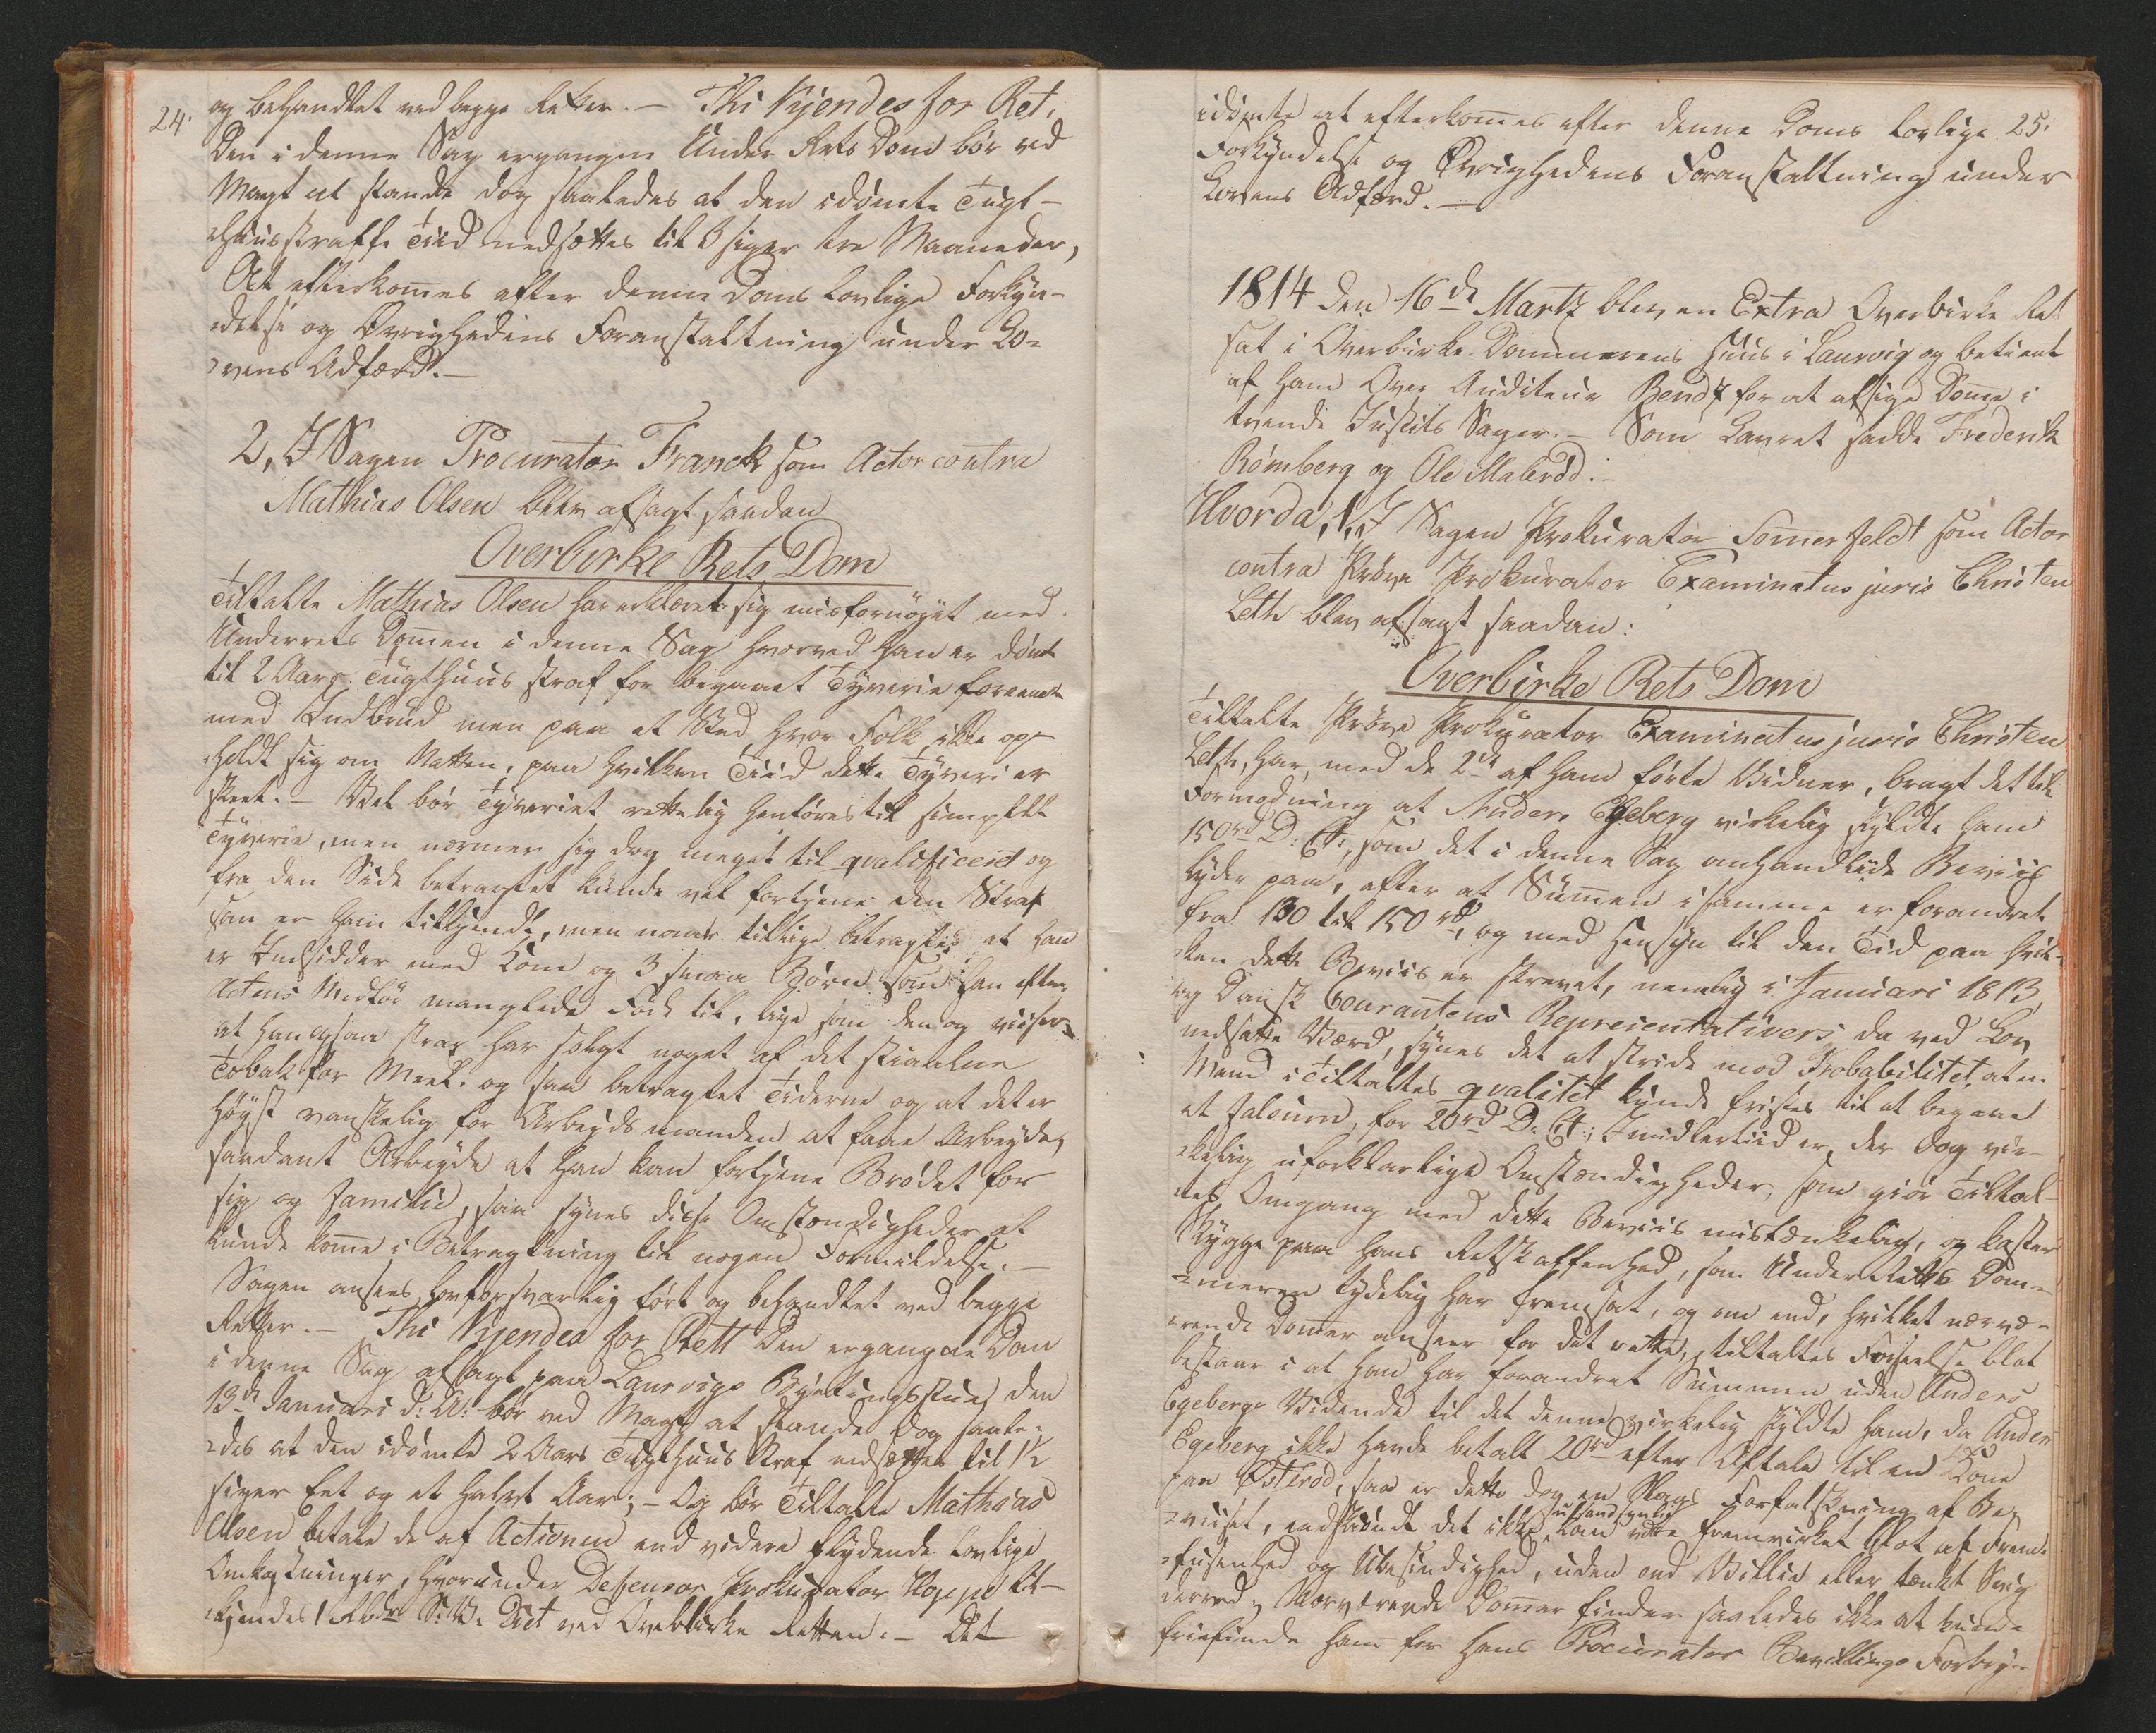 24.
og behandlet ved begge Retter. — Thi Kjendes for Ret,
Den i denne Sag ergangne Under Rets Dom bør ved
Magt at stande dog saaledes at den idømte Tugt-
Huusstraffs Tiid nedsættes til 3 siger tre Maaneder,
At efterkomes efter denne Doms lovlige Forkyn-
delse og Øvrighedens Foranstaltning under Lo-
vens Adfærd. —
2, I Sagen Procurator Franck som Actor contra
Mathias Olsen blev afsagt saadan
Overbirke Rets Dom
Tiltalte Mathias Olsen har erklæret sig misfornøyet med
Underrets Dommen i denne Sag hvorved han er dømt
til 2 Aars Tugthuus straf for begaaet Tyverie forenet
med Indbrud men paa et Sted hvor Folk ikke op-
holdt sig om Natten, paa hvilken Tiid dette Tyveri er
skeet. — Vel bør Tyveriet rettelig henføres til simpelt
Tyverie, men nærmer sig dog meget til qvalificeret og
fra den Side betragtet kunde vel fortjene den Straf
som er ham tilkjendt, men naar tillige betragtes at han
er Indsidder med Kone og 3 smaa Børn som han efter
Actens Medfør manglede Føde til, lige som den og viiser
at han ogsaa strax har solgt noget af det stiaalne
Tobak for Meel. og saa betragtet Tiderne og at det er
høyst vanskelig for Arbeydsmanden at faae Arbeyde,
saadant Arbeyde at han kan fortjene Brødet for
sig og Familie, saa synes disse Omstændigheder at
kunde kome i Betragtning til nogen Formildelse. —
Sagen ansees forsvarlig ført og behandlet ved begge
Retter. — Thi Kjendes for Rett Den ergangne Dom
i denne Sag afsagt paa Laurvigs Byetingsstue den
13de Januari d: A: bør ved Magt at stande dog saale-
des at den idømte 2 Aars Tugthuus Straf nedsættes til 1½
siger Eet og et halvt Aar; — Og bør Tiltalte Mathias
Olsen betale de af Actionen end videre flydende lovlige
Omkostninger, hvorunder Defensor Prokurator til-
kjendes 1 Rbdr S: V. Ved Overbirke Retten. — Det
25.
idømte at efterkomes efter denne Doms lovlige
Forkyndelse og Øvrighedens Foranstaltning under
Lovens Adfærd. —
1814 den 16de Martz blev en Extra Overbirke Ret
sat i Overbirke Dommerens Huus i Laurvig og betient
af ham Over Auditeur Bendz for at afsige Domme i
tvende Justits Sager. — Som Lavret sadde Frederik
Rømberg og Ole Malerød. —
Hvorda, 1, I Sagen Prokurator Somerfeldt som Actor
contra Prøve Prokurator Examinatus juris Christen
Leth blev afsagt saadan:
Overbirke Rets Dom
Tiltalte Prøve Prokurator Examinatus juris Christen
Leth, har, med de 2de af ham førte Vidner, bragt det til
Formodning at Anders Egeberg virkelig skyldte ham
150rd D: Ct:, som det i denne Sag omhandlede Beviis
lyder paa, efter at Summen i samme er forandret
fra 130 til 150 rd, og med Hensyn til den Tid paa hvil-
ken dette Beviis er skrevet, nemlig i Januari 1813,
og Dansk Courantens Repræsentativers da ved Lov
nedsatte Værd, synes det at stride mod Probabilitet, at en
Mand i Tiltaltes qvalitet kunde fristes til at begaae
et falsum, for 20rd D. Ct:; Imidlertiid er der dog vir-
kelig uforklarlige Omstændigheder, som giør Tiltal-
tes Omgang med dette Beviis mistænkelig, og kaster
Skygge paa hans Retskaffenhed, som Under Retts Dom-
meren tydelig har fremsat, og om end, hvilket nærvæ-
rende Domer anseer for det rette, Tiltaltes Forseelse blot
bestaar i at han har forandret Summen uden Anders
Egebergs Vidende til det denne virkelig skyldte ham, da Anders
Egeberg ikke havde betalt 20rd efter Aftale til en Kone
paa Østerød, saa er dette dog en Slags Forfalskning af Be-
viiset, endskiøndt det ikke usandsynlig kan være fremvirket blot af Frem-
fusenhed og Ubesindighed, uden ond Villie eller tænkt Svig
derved; Nærværende Domer finder saaledes ikke at kunde
friefinde ham for hans Procurator Bevillings Forbry-